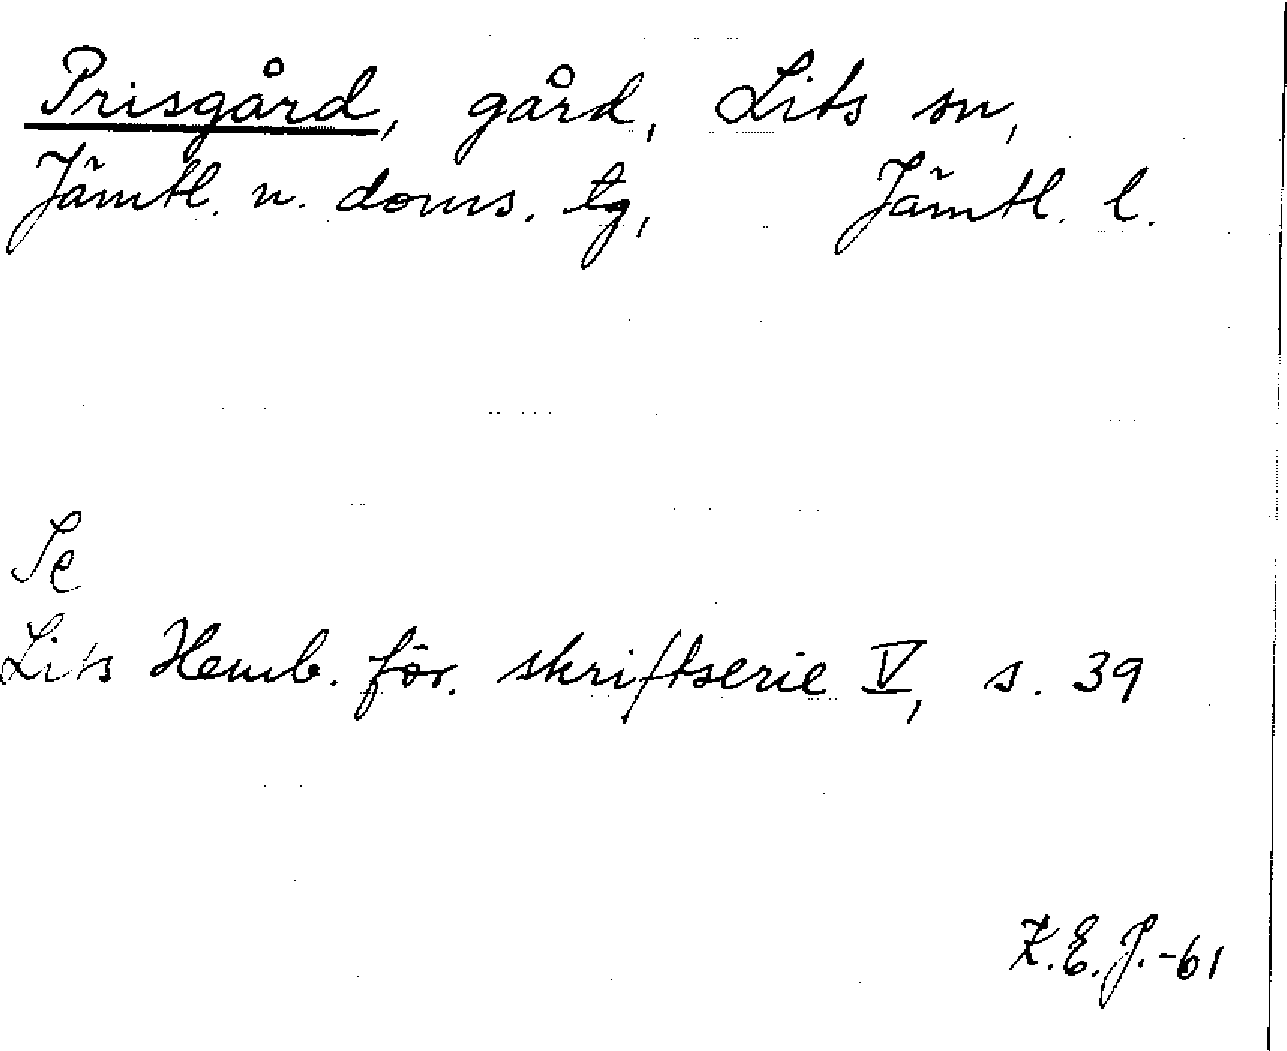 Prisgård, gård, Lits sn,
Jämtl. n. doms. tg, Jämtl. l.
Se
Lits Hemb. för. skriftserie V, s. 39
K.E.J.-61